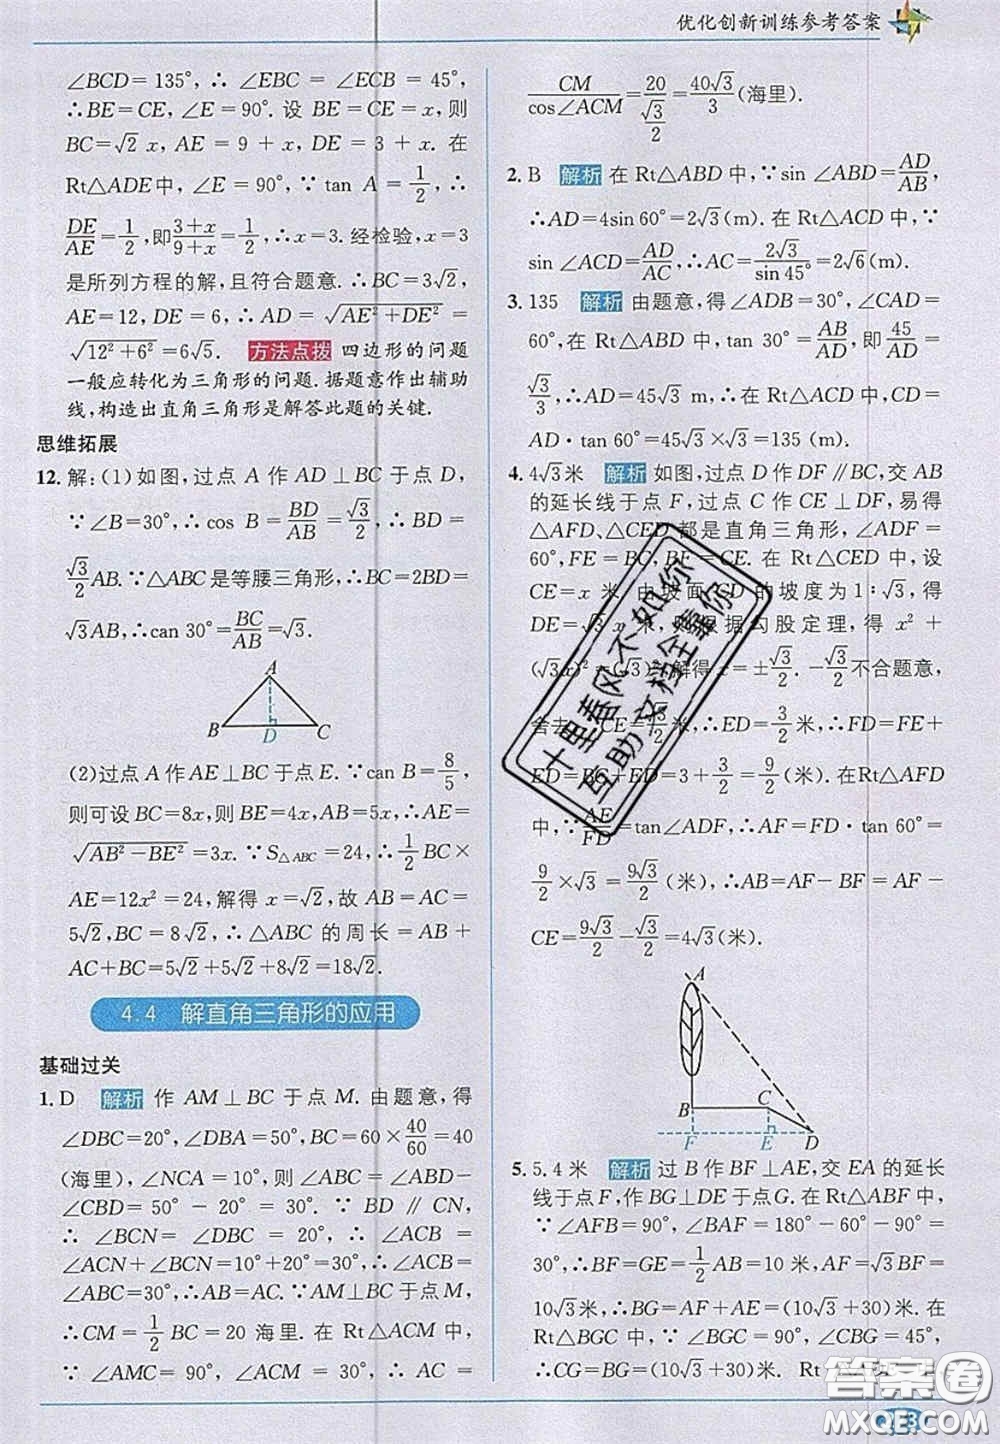 优化创新训练参考答案
∠BCD=135°,∴∠EBC=∠ECB=45°,
∴BE=CE,∠E=90°.设 BE=CE=x,则
BC=√2 x,AE=9+x,DE=3+x.在
Rt△ADE中,∠E=90°,∵tan A=1/2,∴
DE/AE=1/2,即(3+x)/(9+x)=1/2,∴x=3.经检验,x=3
是所列方程的解,且符合题意.∴BC=3√2,
AE=12,DE=6,∴AD=√(AE²+DE²)=
√(12²+6²)=6√5. 方法点拨 四边形的问题
一般应转化为三角形的问题.据题意作出辅助
线,构造出直角三角形是解答此题的关键.
思维拓展
12.解:(1)如图,过点 A 作 AD⊥BC 于点 D,
∵∠B=30°,∴cos B=BD/AB=√3/2,∴BD=
√3/2 AB.∵△ABC是等腰三角形,∴BC=2BD=
√3AB,∴can 30°=BC/AB=√3.
A
B D C
(2)过点A作AE⊥BC于点E.∵can B=8/5,
则可设BC=8x,则BE=4x,AB=5x,∴AE=
√(AB²-BE²)=3x.∵S△ABC=24,∴1/2 BC×
AE=12x²=24,解得 x=√2,故 AB=AC=
5√2,BC=8√2,∴△ABC 的周长=AB+
AC+BC=5√2+5√2+8√2=18√2.
4.4 解直角三角形的应用
基础过关
1.D 解析 作 AM⊥BC 于点 M.由题意,得
∠DBC=20°,∠DBA=50°,BC=60×40/60=40
(海里),∠NCA=10°,则∠ABC=∠ABD-
∠CBD=50°-20°=30°.∵BD∥CN,
∴∠BCN=∠DBC=20°,∴∠ACB=
∠ACN+∠BCN=10°+20°=30°,∴∠ACB=
∠ABC=30°,∴AB=AC.∵AM⊥BC于点M,
∴CM=1/2 BC=20 海里.在 Rt△ACM 中,
∵∠AMC=90°,∠ACM=30°,∴AC=
CM/cos∠ACM=20/(√3/2)=40√3/3(海里).
2.B 解析 在 Rt△ABD 中,∵sin∠ABD=AD/AB,
∴AD=4sin 60°=2√3(m).在 Rt△ACD 中,∵
sin∠ACD=AD/AC,∴AC=2√3/sin 45°=2√6(m).
3.135 解析 由题意,得∠ADB=30°,∠CAD=
60°,在 Rt△ABD 中,tan 30°=AB/AD,即45/AD=
√3/3,∴AD=45√3 m.在 Rt△ACD 中,CD=
AD·tan 60°=45√3×√3=135(m).
4.4√3米 解析 如图,过点D作DF∥BC,交 AB
的延长线于点 F,过点 C 作 CE⊥DF,易得
△AFD、△CED 都是直角三角形,∠ADF=
60°,FE=BC,BF=CE.在 Rt△CED 中,设
CE=x 米.由坡面CD的坡度为1∶√3,得
DE=√3x 米,则根据勾股定理,得 x²+
(√3x)²=(√3)²,解得x=±√3/2.-√3/2不合题意,
舍去,∴CE=√3/2米,∴ED=3/2米,∴FD=FE+
ED=BC+ED=3+3/2=9/2(米).在Rt△AFD
中,∵AF/FD=tan∠ADF,∴AF=FD·tan 60°=
9/2×√3=9√3/2(米),∴AB=AF-BF=AF-
CE=9√3/2-√3/2=4√3(米).
A
B C
F E D
5.5.4米 解析 过B作BF⊥AE,交EA的延长
线于点F,作BG⊥DE于点G.在 Rt△ABF 中,
∵∠AFB=90°,∠BAF=180°-60°-90°=
30°,∴BF=GE=1/2 AB=10米,∴AF=
10√3米,∴BG=AF+AE=(10√3+30)米.在
Rt△BGC 中,∵∠BGC=90°,∠CBG=45°,
∴CG=BG=(10√3+30)米.
十里春风不如你
互助文档全靠你
答案圈
MXQE.COM